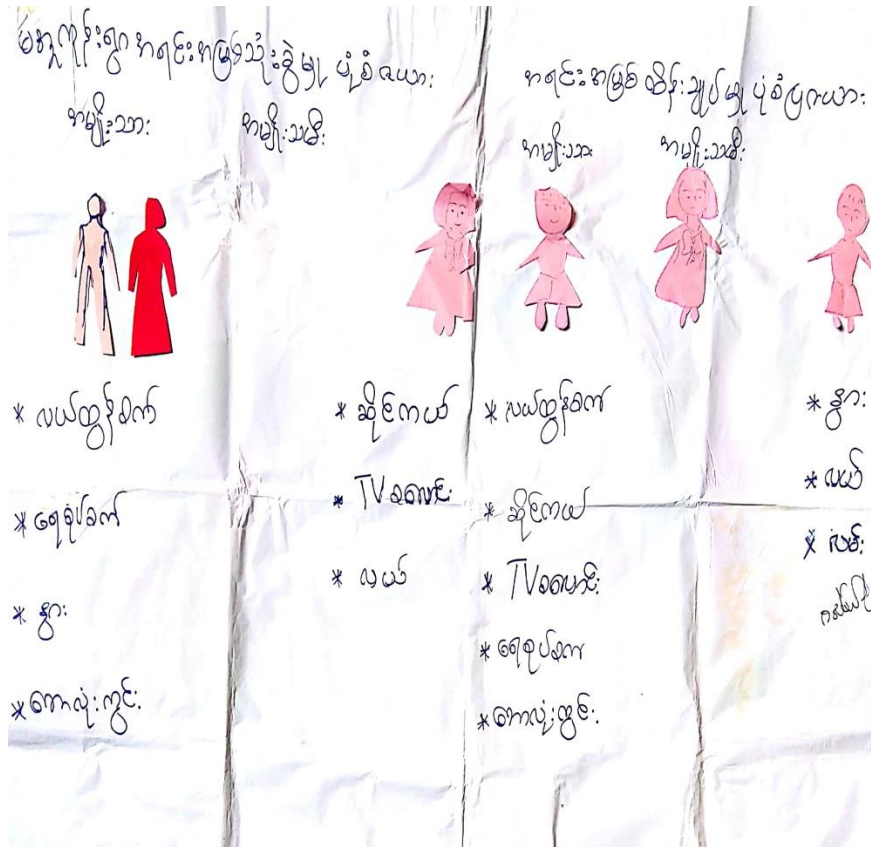 အရင်းအမြစ်သုံးစွဲမှု ပုံစံဇယား
အမျိုးသား အမျိုးသမီး
* လယ်ထွန်စက်
* ရေစုပ်စက်
* နွား
* ဘောလုံးကွင်း
* ဆိုင်ကယ်
* TV စလောင်း
* လယ်
အရင်းအမြစ် ထိန်းချုပ်မှု ပုံစံပြဇယား
အမျိုးသား အမျိုးသမီး
* လယ်ထွန်စက်
* ဆိုင်ကယ်
* TV စလောင်း
* ရေစုပ်စက်
* ဘောလုံးကွင်း
* နွား
* လယ်
* လမ်း